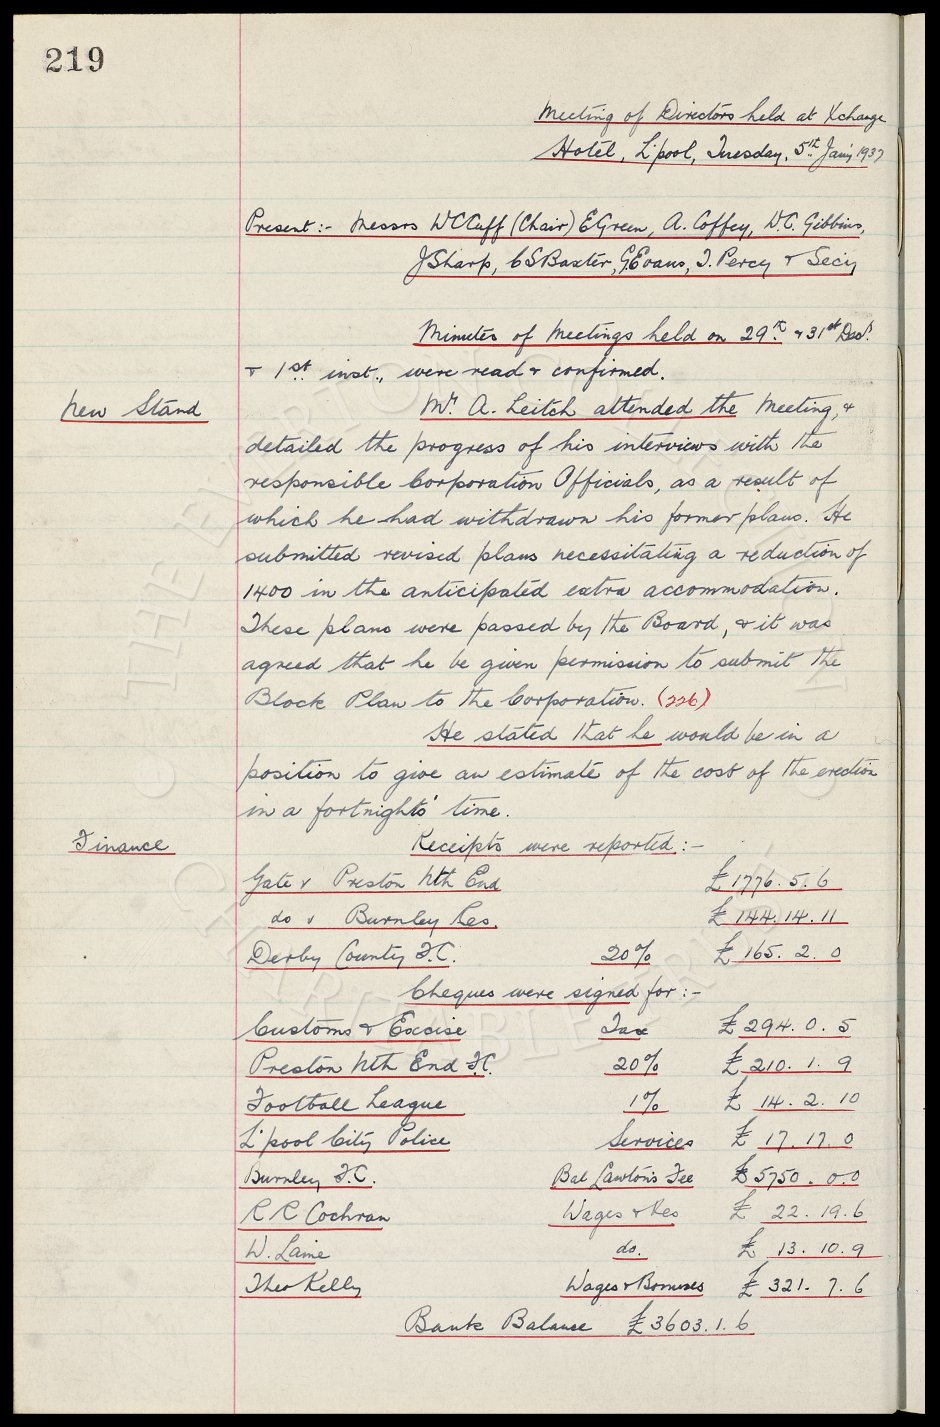 219
Meeting of Directors held at Xchange
Hotel, L'pool, Tuesday, 5th Jany 1937
Present:- Messrs WCCuff (Chair) EGreen, A. Coffey, W.C. Gibbins,
JSharp, CSBaxter, GEvans, T. Percy & Secy
Minutes of Meetings held on 29th & 31st Decr
& 1st inst., were read & confirmed.
New Stand
Mr. A. Leitch attended the Meeting, &
detailed the progress of his interviews with the
responsible Corporation Officials, as a result of
which he had withdrawn his former plans. He
submitted revised plans necessitating a reduction of
1400 in the anticipated extra accommodation.
These plans were passed by the Board, & it was
agreed that he be given permission to submit the
Block Plan to the Corporation. (226)
He stated that he would be in a
position to give an estimate of the cost of the erection
in a fortnights' time.
Finance
Receipts were reported:-
Gate v Preston Nth End £1776.5.6
do v Burnley Res. £144.14.11
Derby County F.C. 20% £165.2.0
Cheques were signed for:-
Customs & Excise Tax £294.0.5
Preston Nth End F.C. 20% £210.1.9
Football League 1% £14.2.10
L'pool City Police Services £17.17.0
Burnley F.C. Bal Lawton's Fee £5750.0.0
R R Cochran Wages & Res £22.19.6
W. Laine do. £13.10.9
Theo Kelly Wages & Bonuses £321.7.6
Bank Balance £3603.1.6
THE EVERTON COLLECTION
CHARITABLE TRUST